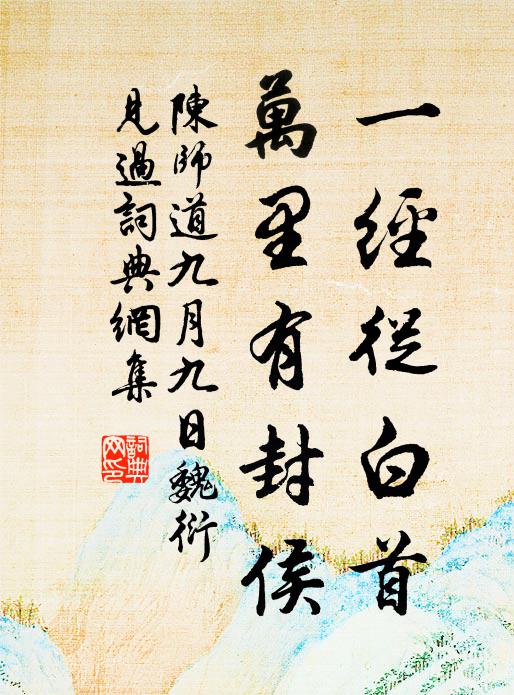 一經從白首
萬里有封侯
陳師道九月九日魏衍
見過詞典網集
詞典
网印